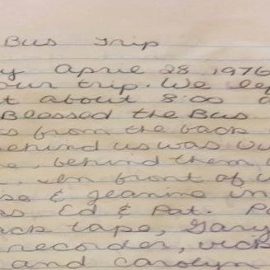 Bus Trip
April 28 1976
our trip. We
at about 8:00
Blessed the Bus
from the back
behind us was
behind them
In front of
& Jeanine
Ed & Pat.
tape, Gary
recorder,
and Carolyn